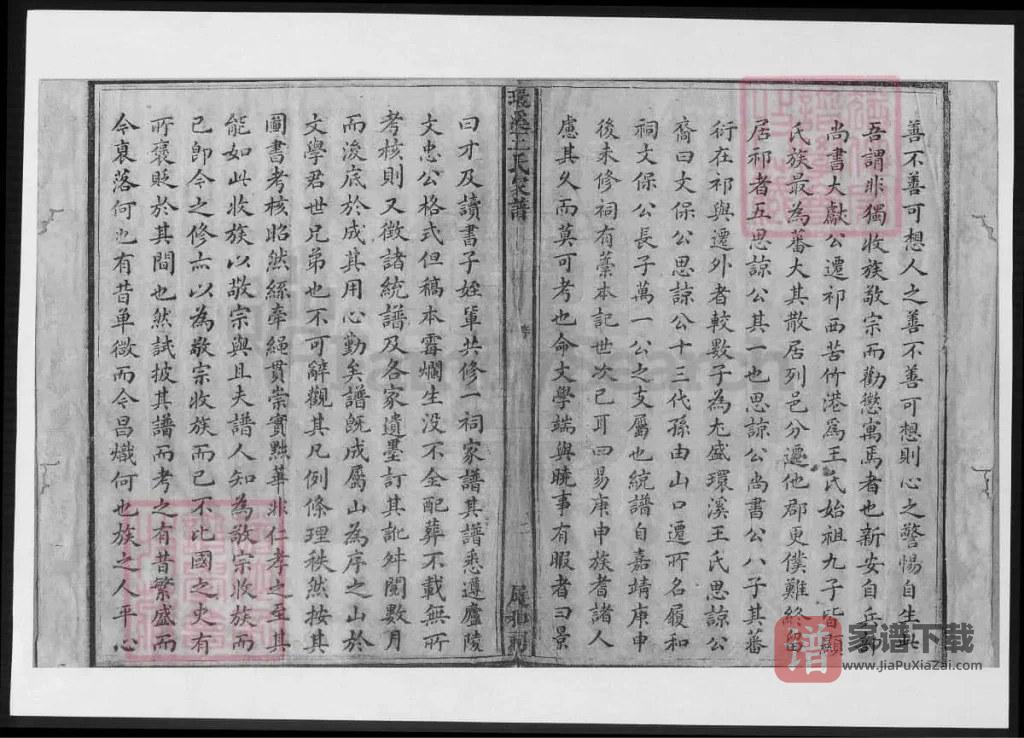 善不善可想人之善不善可想則心之警惕自生此
吾謂非獨收族敬宗而勸懲寓焉者也新安自兵部
尚書大獻公遷祁西苦竹港爲王氏始祖九子皆顯
氏族最為蕃大其散居列邑分遷他郡更僕難終留
居祁者五思諒公其一也思諒公尚書公八子其蕃
衍在祁與遷外者較數子為尤盛環溪王氏思諒公
裔曰文保公思諒公十三代孫由山口遷所名履和
祠文保公長子萬一公之支屬也統譜自嘉靖庚申
後未修祠有藁本記世次已耳四易庚申族者諸人
慮其久而莫可考也命文學端與曉事有暇者曰景
環溪王氏家譜
二
履和祠
曰才及讀書子姪軍共修一祠家譜其譜悉遵廬陵
文忠公格式但稿本霉爛生没不全配葬不載無所
考核則又徵諸統譜及各家遺墨訂其訛舛閱數月
而浚底於成其用心勤矣譜既成屬山為序之山於
文學君世兄弟也不可辭觀其凡例條理秩然按其
圖書考核昭然絲牽繩貫崇實黜華非仁孝之至其
能如此收族以敬宗與且夫譜人知為敬宗收族而
已即今之修亦以為敬宗收族而已不比國之史有
所褒貶於其間也然試披其譜而考之有昔繁盛而
今衰落何也有昔单微而今昌熾何也族之人平心
家谱下载
www.JiaPuXiaZai.com
譜